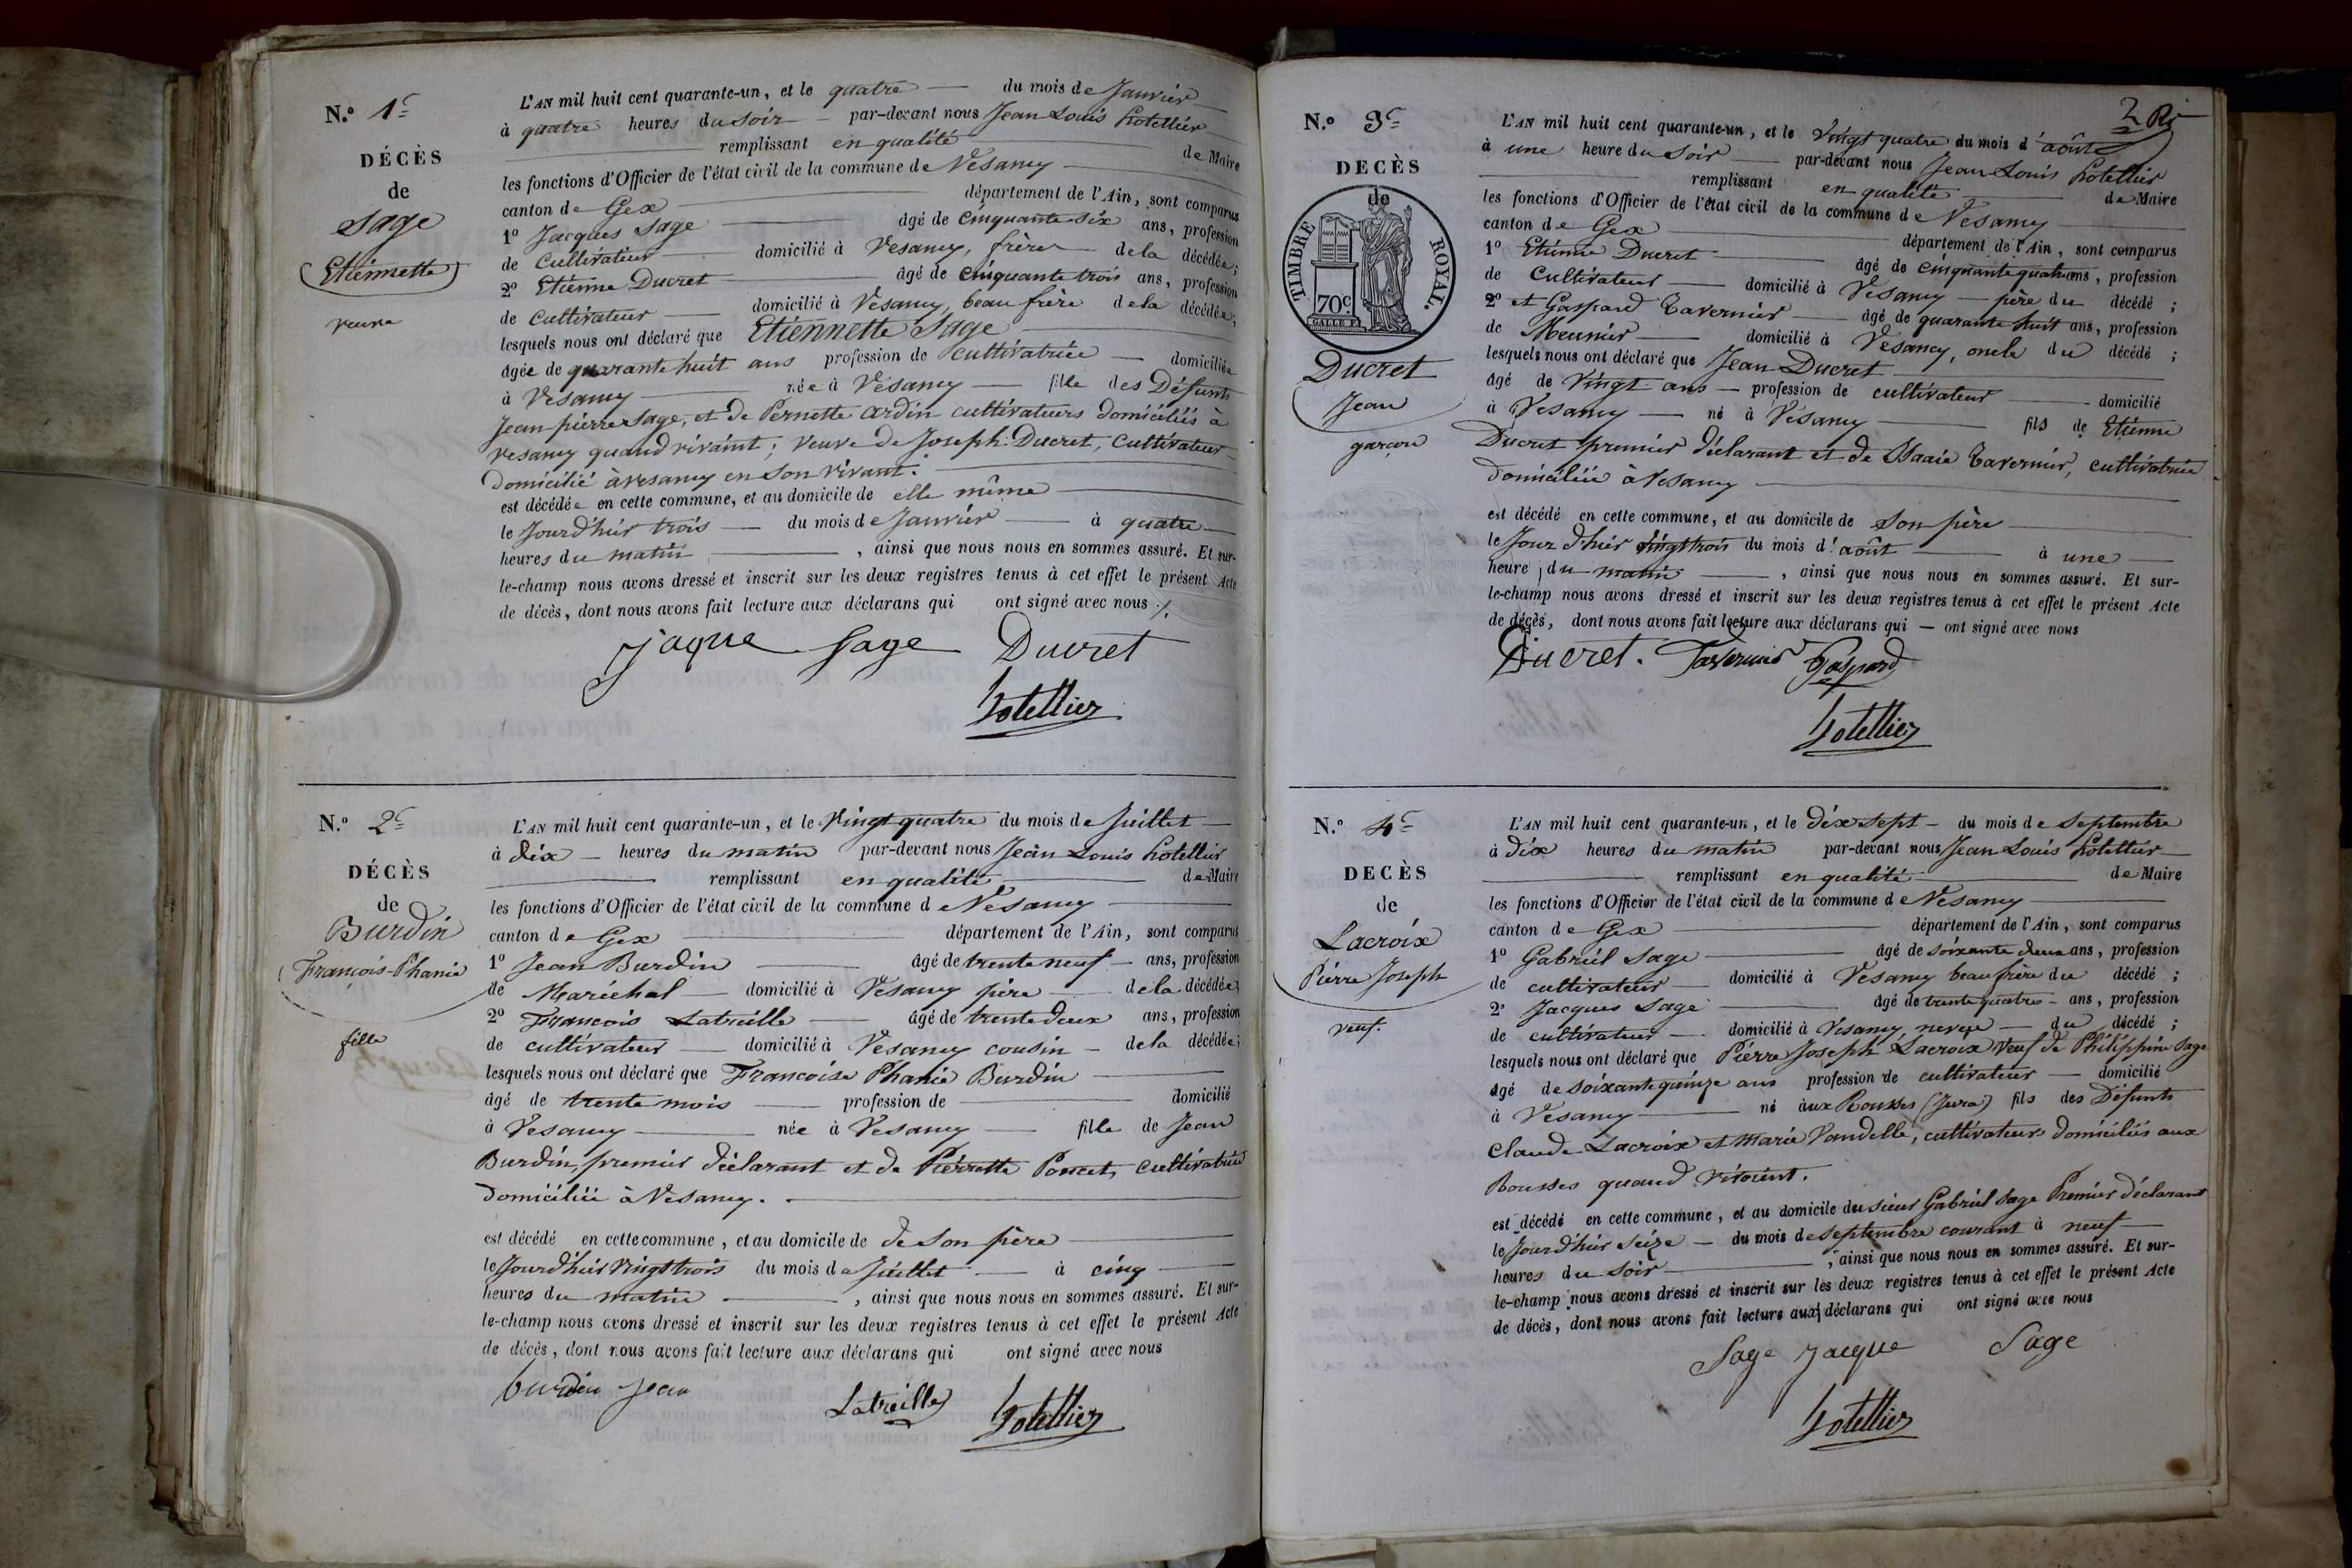 N.º 1e
DÉCÈS
de
Sage
Etiennette
veuve
L'AN mil huit cent quarante-un, et le quatre du mois de Janvier
à quatre heures du soir par-devant nous Jean Louis Lotellier
remplissant en qualité de Maire
les fonctions d'Officier de l'état civil de la commune de Vesancy
canton de Gex département de l'Ain, sont comparus
1º Jacques Sage âgé de cinquante-six ans, profession
de Cultivateur domicilié à Vesancy, frère de la décédée;
2º Etienne Ducret âgé de cinquante trois ans, profession
de cultivateur domicilié à Vesancy, beau frère de la décédée;
lesquels nous ont déclaré que Etiennette Sage
âgée de quarante huit ans profession de cultivatrice domiciliée
à Vesancy née à Vesancy fille des Défunts
Jean pierre Sage, et de Pernette Ardin cultivateurs domiciliés à
Vesancy quand vivaint; veuve de Joseph Ducret, Cultivateur
domicilié à Vesancy en son vivant.
est décédée en cette commune, et au domicile de elle même
le Jourd'hier trois du mois de Janvier à quatre
heures du matin, ainsi que nous nous en sommes assuré. Et sur-
le-champ nous avons dressé et inscrit sur les deux registres tenus à cet effet le présent Acte
de décès, dont nous avons fait lecture aux déclarans qui ont signé avec nous ./.
Jaque Sage Ducret
Lotellier
N.º 2e
DÉCÈS
de
Burdin
François-Phanie
fille
L'AN mil huit cent quarante-un, et le vingt quatre du mois de Juillet
à dix heures du matin par-devant nous Jean Louis Lotellier
remplissant en qualité de Maire
les fonctions d'Officier de l'état civil de la commune de Vesancy
canton de Gex département de l'Ain, sont comparus
1º Jean Burdin âgé de trente neuf ans, profession
de Maréchal domicilié à Vesancy père de la décédée;
2º François Latreille âgé de trente deux ans, profession
de cultivateur domicilié à Vesancy cousin de la décédée;
lesquels nous ont déclaré que Françoise Phanie Burdin
âgé de trente mois profession de domicilié
à Vesancy née à Vesancy fille de Jean
Burdin, premier déclarant et de Pierrette Poncet, cultivatrice
domiciliée à Vesancy.
est décédé en cette commune, et au domicile de de son père
le Jourd'hier vingt trois du mois de Juillet à cinq
heures du matin, ainsi que nous nous en sommes assuré. Et sur-
le-champ nous avons dressé et inscrit sur les deux registres tenus à cet effet le présent Acte
de décès, dont nous avons fait lecture aux déclarans qui ont signé avec nous
burdin Jean Latreille Lotellier
N.º 3e
DECÈS
de
TIMBRE ROYAL.
70c
Ducret
Jean
garçon
2
L'AN mil huit cent quarante-un, et le vingt quatre du mois d'août
à une heure du soir par-devant nous Jean Louis Lotellier
remplissant en qualité de Maire
les fonctions d'Officier de l'état civil de la commune de Vesancy
canton de Gex département de l'Ain, sont comparus
1º Etienne Ducret âgé de cinquante quatre ans, profession
de Cultivateur domicilié à Vesancy père du décédé;
2º et Gaspard Tavernier âgé de quarante huit ans, profession
de Meunier domicilié à Vesancy, oncle du décédé;
lesquels nous ont déclaré que Jean Ducret
âgé de vingt ans profession de cultivateur domicilié
à Vesancy né à Vesancy fils de Etienne
Ducret premier déclarant et de Marie Tavernier, cultivatrice
domiciliée à Vesancy
est décédé en cette commune, et au domicile de son père
le Jour d'hier vingt trois du mois d'août à une
heure du matin, ainsi que nous nous en sommes assuré. Et sur-
le-champ nous avons dressé et inscrit sur les deux registres tenus à cet effet le présent Acte
de décès, dont nous avons fait lecture aux déclarans qui ont signé avec nous
Ducret. Tavernier Gaspard
Lotellier
N.º 4e
DECÈS
de
Lacroix
Pierre Joseph
veuf.
L'AN mil huit cent quarante-un, et le dix sept du mois de Septembre
à dix heures du matin par-devant nous Jean Louis Lotellier
remplissant en qualité de Maire
les fonctions d'Officier de l'état civil de la commune de Vesancy
canton de Gex département de l'Ain, sont comparus
1º Gabriel Sage âgé de soixante deux ans, profession
de cultivateur domicilié à Vesancy beau frère du décédé;
2º Jacques Sage âgé de trente quatre ans, profession
de cultivateur domicilié à Vesancy, neveu du décédé;
lesquels nous ont déclaré que Pierre Joseph Lacroix veuf de Philippine Sage
âgé de soixante quinze ans profession de cultivateur domicilié
à Vesancy né aux Rousses (Jura) fils des Défunts
Claude Lacroix et Marie Vandelle, cultivateurs domiciliés aux
Rousses quand vivoient.
est décédé en cette commune, et au domicile du sieur Gabriel Sage Premier déclarant
le Jourd'hier seize du mois de Septembre courant à neuf
heures du soir, ainsi que nous nous en sommes assuré. Et sur-
le-champ nous avons dressé et inscrit sur les deux registres tenus à cet effet le présent Acte
de décès, dont nous avons fait lecture aux déclarans qui ont signé avec nous
Sage Jacque Sage
Lotellier